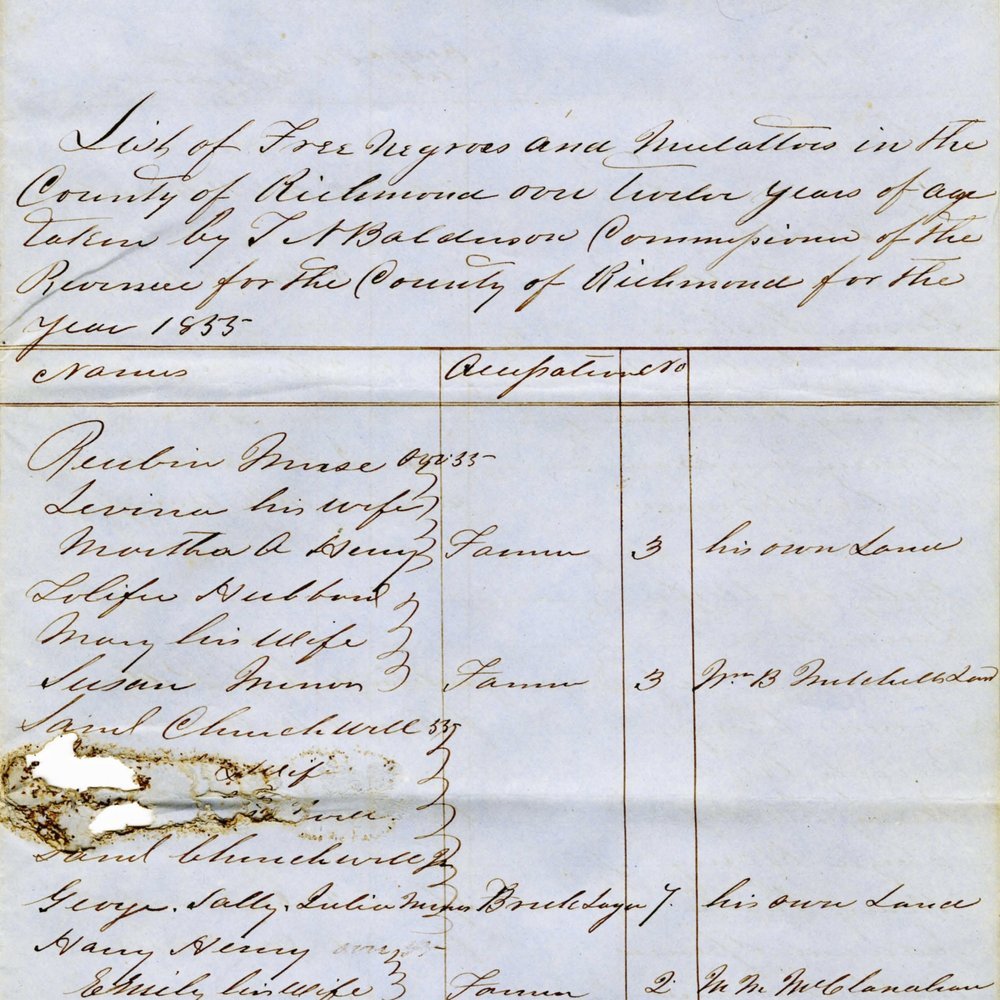 List of Free Negroes and Mulattoes in the
County of Richmond over Twelve Years of age
taken by T N Balderson Commissioner of the
Revenue for the County of Richmond for the
Year 1855
Names Occupation No
Reubin Muse over 55
Levina his wife
Martha A Henry Farmer 3 his own Land
Hubbard
Mary his Wife
Susan Minor Farmer 3 Wm B Mitchells Land
Saml Churchwell 55
& Wife
Saml Churchwell Jr
George. Sally. Julia Brick Layer 7. his own Land
Harry Henry over 55
Emily his Wife Farmer 2 M M McClanahan